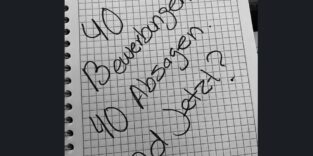 40
Bewerbungen
40 Absagen.
Und jetzt?